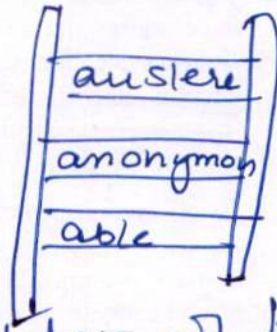 austere
anonymon
able